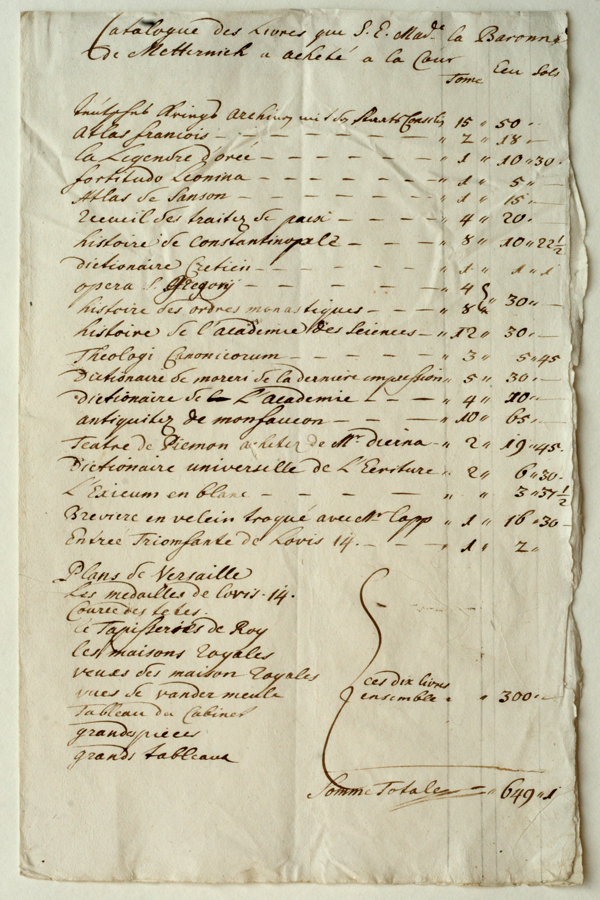 Catalogue des Livres que S. E. Made la Baronne
de Metternich a acheté a la Cour
Tome Ecu Sols
Reichs Archiv mit des Consil: 15 " 50 "
Atlas francois 2 " 18 "
la Legendre d'orée " 1 " 10 " 30 "
fortitudo Leonina " 1 " 5 "
Atlas de Sanson " 1 " 15 "
Recueil des traitez de paix " 4 " 20 "
histoire de Constantinople " 8 " 10 " 22 1/2
dictionaire Cretien " 1 " 1 " 1
opera S. Gregorij " 4
histoire des ordres monastiques " 8 " 30 "
histoire de l'academie des Sciences " 12 " 30 "
Theologi Canonicorum " 3 " 5 " 45
Dictionaire de moreri de la derniere impression " 5 " 30 "
Dictionaire de L'academie " 4 " 20 "
antiquitez de monfaucon " 10 " 65 "
Teatre de Piemon achetez de Mr. " 2 " 19 " 45
Dictionaire universelle de L'Ecriture " 2 " 6 " 30
L'Exicum en blanc " " 3 " 37 1/2
Breviere en velein troqué avec Mr Capp " 1 " 16 " 30
Entree Triomfante de Lovis 14. " 1 " 2 "
Plans de Versaille
Les medailles de Lovis 14.
Cource des tetes
Le Tapisseries de Roy
les maisons Royales
veues des maison Royales
vues de vander meule
Tableau du Cabinet
grandes pieces
grands tableaux
ces dix livres
ensemble " " 300 "
Somme Totale " 649 " 1